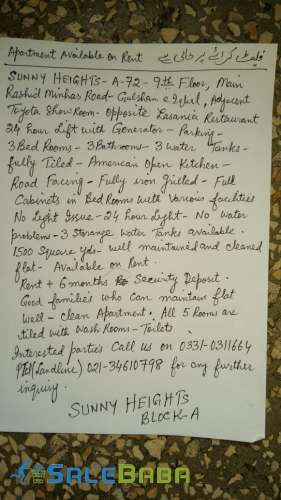 Apartment Available on Rent فلیٹ کرائے پر خالی ہے
SUNNY HEIGHTS- A-72 - 9th Floor, Main
Rashid Minhas Road- Gulshan e Iqbal, Adjecent
Toyota Show Room- opposite Lasania Restaurant
24 hour Lift with Generator - Parking -
3 Bed Rooms - 3 Bathrooms- 3 water Tanks-
fully Tiled - American Open Kitchen-
Road Facing - Fully iron Grilled - Full
Cabinets in Bed Rooms with Various facilities
No Light Issue - 24 hour Light - No Water
problems - 3 Storange water Tanks available.
1500 Square yds - well maintained and cleaned
flat - Available on Rent.
Rent + 6 months Security Deposit.
Good families who can maintain flat
Well - clean Apartment. All 5 Rooms are
tiled with Wash Rooms - Toilets.
Interested parties Call us on 0331-0311664
PTcl (Landline) 021-34610798 for any further
inquiry.
SUNNY HEIGHTS
BLOCK-A
SALEBABA